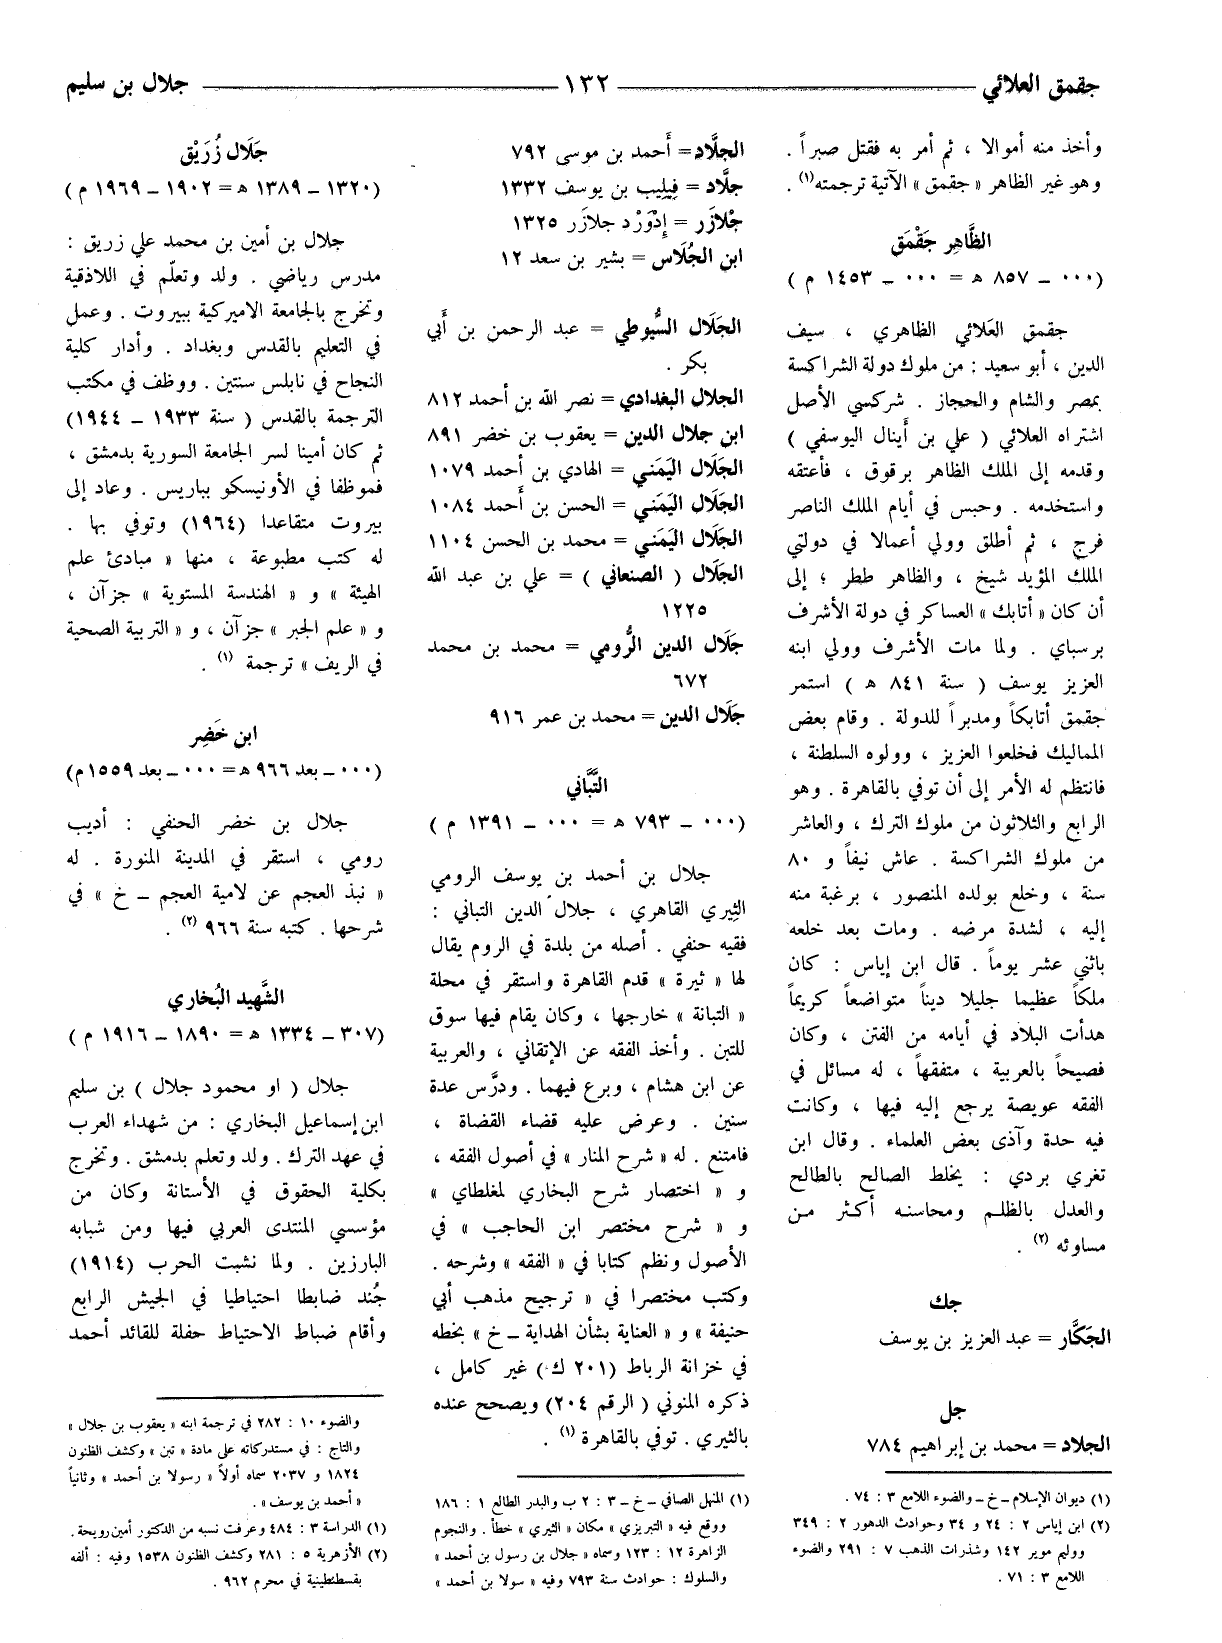 جقمق العلائي
١٣٢
جلال بن سليم
وأخذ منه أموالا ، ثم أمر به فقتل صبراً .
وهو غير الظاهر « جقمق » الآتية ترجمته(١) .
الظَّاهِر جَقْمَق
(٠٠٠ ــ ٨٥٧ ه = ٠٠٠ ــ ١٤٥٣ م )
جقمق العَلائي الظاهري ، سيف
الدين ، أبو سعيد : من ملوك دولة الشراكسة
بمصر والشام والحجاز . شركسي الأصل
اشتراه العلائي ( علي بن أَينال اليوسفي )
وقدمه إلى الملك الظاهر برقوق ، فأعتقه
واستخدمه . وحبس في أيام الملك الناصر
فرج ، ثم أطلق وولي أعمالا في دولتي
الملك المؤيد شيخ ، والظاهر ططر ؛ إلى
أن كان « أتابك » العساكر في دولة الأشرف
برسباي . ولما مات الأشرف وولي ابنه
العزيز يوسف ( سنة ٨٤١ ه ) استمر
جقمق أتابكاً ومدبراً للدولة . وقام بعض
المماليك فخلعوا العزيز ، وولوه السلطنة ،
فانتظم له الأمر إلى أن توفي بالقاهرة . وهو
الرابع والثلاثون من ملوك الترك ، والعاشر
من ملوك الشراكسة . عاش نيفاً و ٨٠
سنة ، وخلع بولده المنصور ، برغبة منه
إليه ، لشدة مرضه . ومات بعد خلعه
باثني عشر يوماً . قال ابن إياس : كان
ملكاً عظيما جليلا ديناً متواضعاً كريماً
هدأت البلاد في أيامه من الفتن ، وكان
فصيحاً بالعربية ، متفقهاً ، له مسائل في
الفقه عويصة يرجع إليه فيها ، وكانت
فيه حدة وآذى بعض العلماء . وقال ابن
تغري بردي : يخلط الصالح بالطالح
والعدل بالظلم ومحاسنه أكثر من
مساوئه (٢) .
جك
الجَكَّار = عبد العزيز بن يوسف
جل
الجلاد = محمد بن إبراهيم ٧٨٤
(١) ديوان الإسلام ــ خ ــ والضوء اللامع ٣ : ٧٤ .
(٢) ابن إياس ٢ : ٢٤ و ٣٤ وحوادث الدهور ٢ : ٣٤٩
ووليم موير ١٤٢ وشذرات الذهب ٧ : ٢٩١ والضوء
اللامع ٣ : ٧١ .
الجلَّاد = أَحمد بن موسى ٧٩٢
جلَّاد = فِيلِيب بن يوسف ١٣٣٢
جْلازَر = إدْوَرْد جلازَر ١٣٢٥
ابن الجُلَاس = بشير بن سعد ١٢
الجَلَال السُّيوطي = عبد الرحمن بن أَبي
بكر .
الجلال البغدادي = نصر الله بن أحمد ٨١٢
ابن جلال الدين = يعقوب بن خضر ٨٩١
الجَلَال اليَمَني = الهادي بن أحمد ١٠٧٩
الجَلَال اليَمَني = الحسن بن أَحمد ١٠٨٤
الجَلَال اليَمَني = محمد بن الحسن ١١٠٤
الجَلَال ( الصنعاني ) = علي بن عبد الله
١٢٢٥
جَلَال الدين الرُّومي = محمد بن محمد
٦٧٢
جَلَال الدين = محمد بن عمر ٩١٦
التَّبَّاني
(٠٠٠ ــ ٧٩٣ ه = ٠٠٠ ــ ١٣٩١ م )
جلال بن أحمد بن يوسف الرومي
الثِيري القاهري ، جلال الدين التباني :
فقيه حنفي . أصله من بلدة في الروم يقال
لها « ثيرة » قدم القاهرة واستقر في محلة
« التبانة » خارجها ، وكان يقام فيها سوق
للتبن . وأخذ الفقه عن الإتقاني ، والعربية
عن ابن هشام ، وبرع فيهما . ودرَّس عدة
سنين . وعرض عليه قضاء القضاة ،
فامتنع . له « شرح المنار » في أصول الفقه ،
و « اختصار شرح البخاري لمغلطاي »
و « شرح مختصر ابن الحاجب » في
الأصول ونظم كتابا في « الفقه » وشرحه .
وكتب مختصرا في « ترجيح مذهب أبي
حنيفة » و « العناية بشأن الهداية ــ خ » بخطه
في خزانة الرباط (٢٠١ ك) غير كامل ،
ذكره المنوني ( الرقم ٢٠٤) ويصحح عنده
بالثيري . توفي بالقاهرة (١) .
(١) المنهل الصافي ــ خ ــ ٣ : ٢ ب والبدر الطالع ١ : ١٨٦
ووقع فيه « التبريزي » مكان « الثيري » خطأ . والنجوم
الزاهرة ١٢ : ١٢٣ وسماه « جلال بن رسول بن أحمد »
والسلوك : حوادث سنة ٧٩٣ وفيه « سولا بن أحمد »
جَلَال زُرَيْق
(١٣٢٠ ــ ١٣٨٩ ه = ١٩٠٢ ــ ١٩٦٩ م )
جلال بن أمين بن محمد علي زريق :
مدرس رياضي . ولد وتعلّم في اللاذقية
وتخرج بالجامعة الاميركية ببيروت . وعمل
في التعليم بالقدس وبغداد . وأدار كلية
النجاح في نابلس سنتين . ووظف في مكتب
الترجمة بالقدس ( سنة ١٩٣٣ ــ ١٩٤٤)
ثم كان أمينا لسر الجامعة السورية بدمشق ،
فموظفا في الأونيسكو بباريس . وعاد إلى
بيروت متقاعدا (١٩٦٤) وتوفي بها .
له كتب مطبوعة ، منها « مبادئ علم
الهيئة » و « الهندسة المستوية » جزآن ،
و « علم الجبر » جزآن ، و « التربية الصحية
في الريف » ترجمة (١) .
ابن خَضِر
(٠٠٠ ــ بعد ٩٦٦ ه = ٠٠٠ ــ بعد ١٥٥٩ م)
جلال بن خضر الحنفي : أديب
رومي ، استقر في المدينة المنورة . له
« نبذ العجم عن لامية العجم ــ خ » في
شرحها . كتبه سنة ٩٦٦ (٢) .
الشَّهيد البُخاري
(٣٠٧ ــ ١٣٣٤ ه = ١٨٩٠ ــ ١٩١٦ م )
جلال ( او محمود جلال ) بن سليم
ابن إسماعيل البخاري : من شهداء العرب
في عهد الترك . ولد وتعلم بدمشق . وتخرج
بكلية الحقوق في الأستانة وكان من
مؤسسي المنتدى العربي فيها ومن شبابه
البارزين . ولما نشبت الحرب (١٩١٤)
جُند ضابطا احتياطيا في الجيش الرابع
وأقام ضباط الاحتياط حفلة للقائد أحمد
والضوء ١٠ : ٢٨٢ في ترجمة ابنه « يعقوب بن جلال »
والتاج : في مستدركاته على مادة « تبن » وكشف الظنون
١٨٢٤ و ٢٠٣٧ سماه أولاً « رسولا بن أحمد » وثانياً
« أحمد بن يوسف » .
(١) الدراسة ٣ : ٤٨٤ وعرفت نسبه من الدكتور أمين رويحة .
(٢) الأزهرية ٥ : ٢٨١ وكشف الظنون ١٥٣٨ وفيه : ألفه
بقسطنطينية في محرم ٩٦٢ .